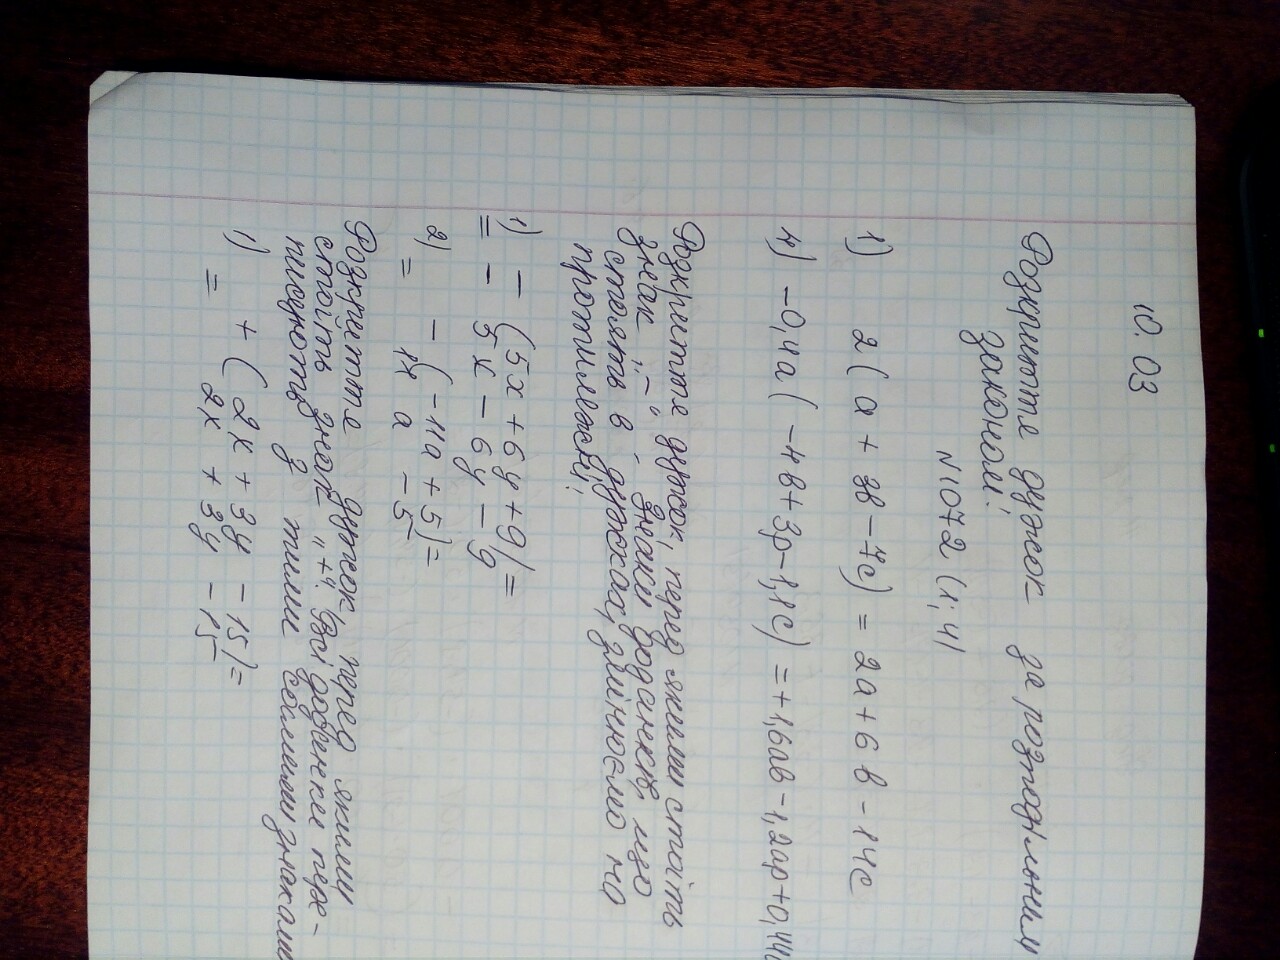 10.03
Розкрийте дужок за розподільним
законом:
N 1072 (1; 4)
1) 2(a + 3b - 7c) = 2a + 6b - 14c
4) -0,4a(-4b + 3p - 1,1c) = +1,6ab - 1,2ap + 0,44
Розкриття дужок, перед якими стоїть
знак „-“, знаки доданків, що
стоять в дужках, змінюємо на
протилежні;
1) - (5x + 6y + 9) =
= - 5x - 6y - 9
2) - (-11a + 5) =
= 11 a - 5
Розкриття дужок, перед якими
стоїть знак „+“. Всі доданки пере-
писують з тими самими знаками
1) + (2x + 3y - 15) =
= 2x + 3y - 15